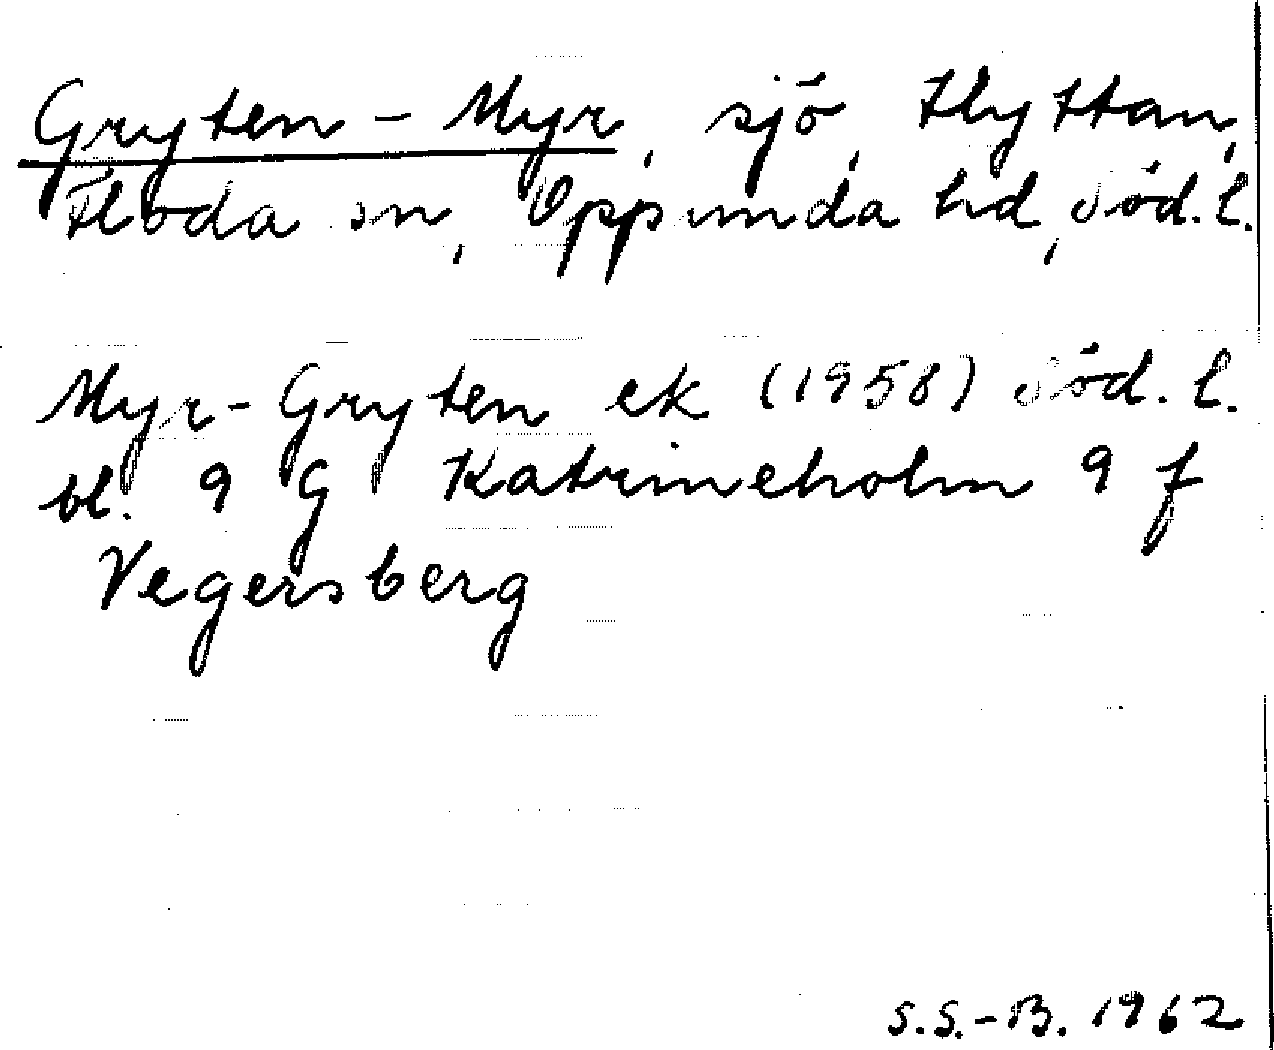 Gryten - Myr, sjö, Hyttan,
Floda sn, Oppunda hd, Söd. l.
Myr-Gryten ek (1958) Söd. l.
bl. 9 G Katrineholm 9 f
Vegersberg
S.S.-B. 1962